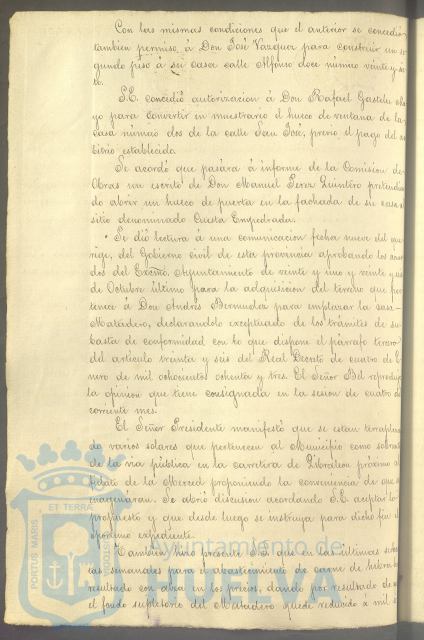 Con las mismas condiciones que el anterior se concedió
también permiso á Don José Vazquez para construir un se
gundo piso á su casa calle Alfonso doce número veinte y si
S.E. concedió autorizacion á Don Rafael
yo para convertir en muestrario el hueco de ventana de la
casa número dos de la calle San José, previo el pago del ar
bitrio establecido.
Se acordó que pasára á informe de la Comision de
Obras un escrito de Don Manuel Perez Quintero pretendien
do abrir un hueco de puerta en la fachada de su casa
sitio denominado Cuesta Empedrada.
Se dió lectura á una comunicacion fecha nueve del que
rige, del Gobierno civil de esta provincia aprobando los acuer
dos del Excmo. Ayuntamiento de veinte y uno y veinte y
de Octubre último para la adquisicion del terreno que per
tenece á Don Andrés Bermudez para emplazar la casa-
Matadero, declarandolo exceptuado de los trámites de su
basta de conformidad con lo que dispone el párrafo tercero
del artículo treinta y seis del Real Decreto de cuatro de E
nero de mil ochocientos ochenta y tres. El Señor Bel reprodujo
la opinion que tiene consignada en la sesion de cuatro del
corriente mes.
El Señor Presidente manifestó que se estan terraplenan
do varios solares que pertenecen al Municipio como sobrante
de la via pública en la carretera de Gibraleon próximo al
de la Merced proponiendo la conveniencia de que se
enagenáran. Se abrió discusion acordando S.E. aceptar lo
propuesto y que desde luego se instruya para dicho fin el
oportuno expediente.
Tambien tuvo presente S.E. que en las últimas subas
tas semanales para el abastecimiento de carne de hebra ha
resultado con alza en los precios, dando por resultado que
el fondo supletorio del Matadero quede reducido á mil s
PORTUS MARIS ET TERRAE CUSTODIA
Ayuntamiento de
HUELVA